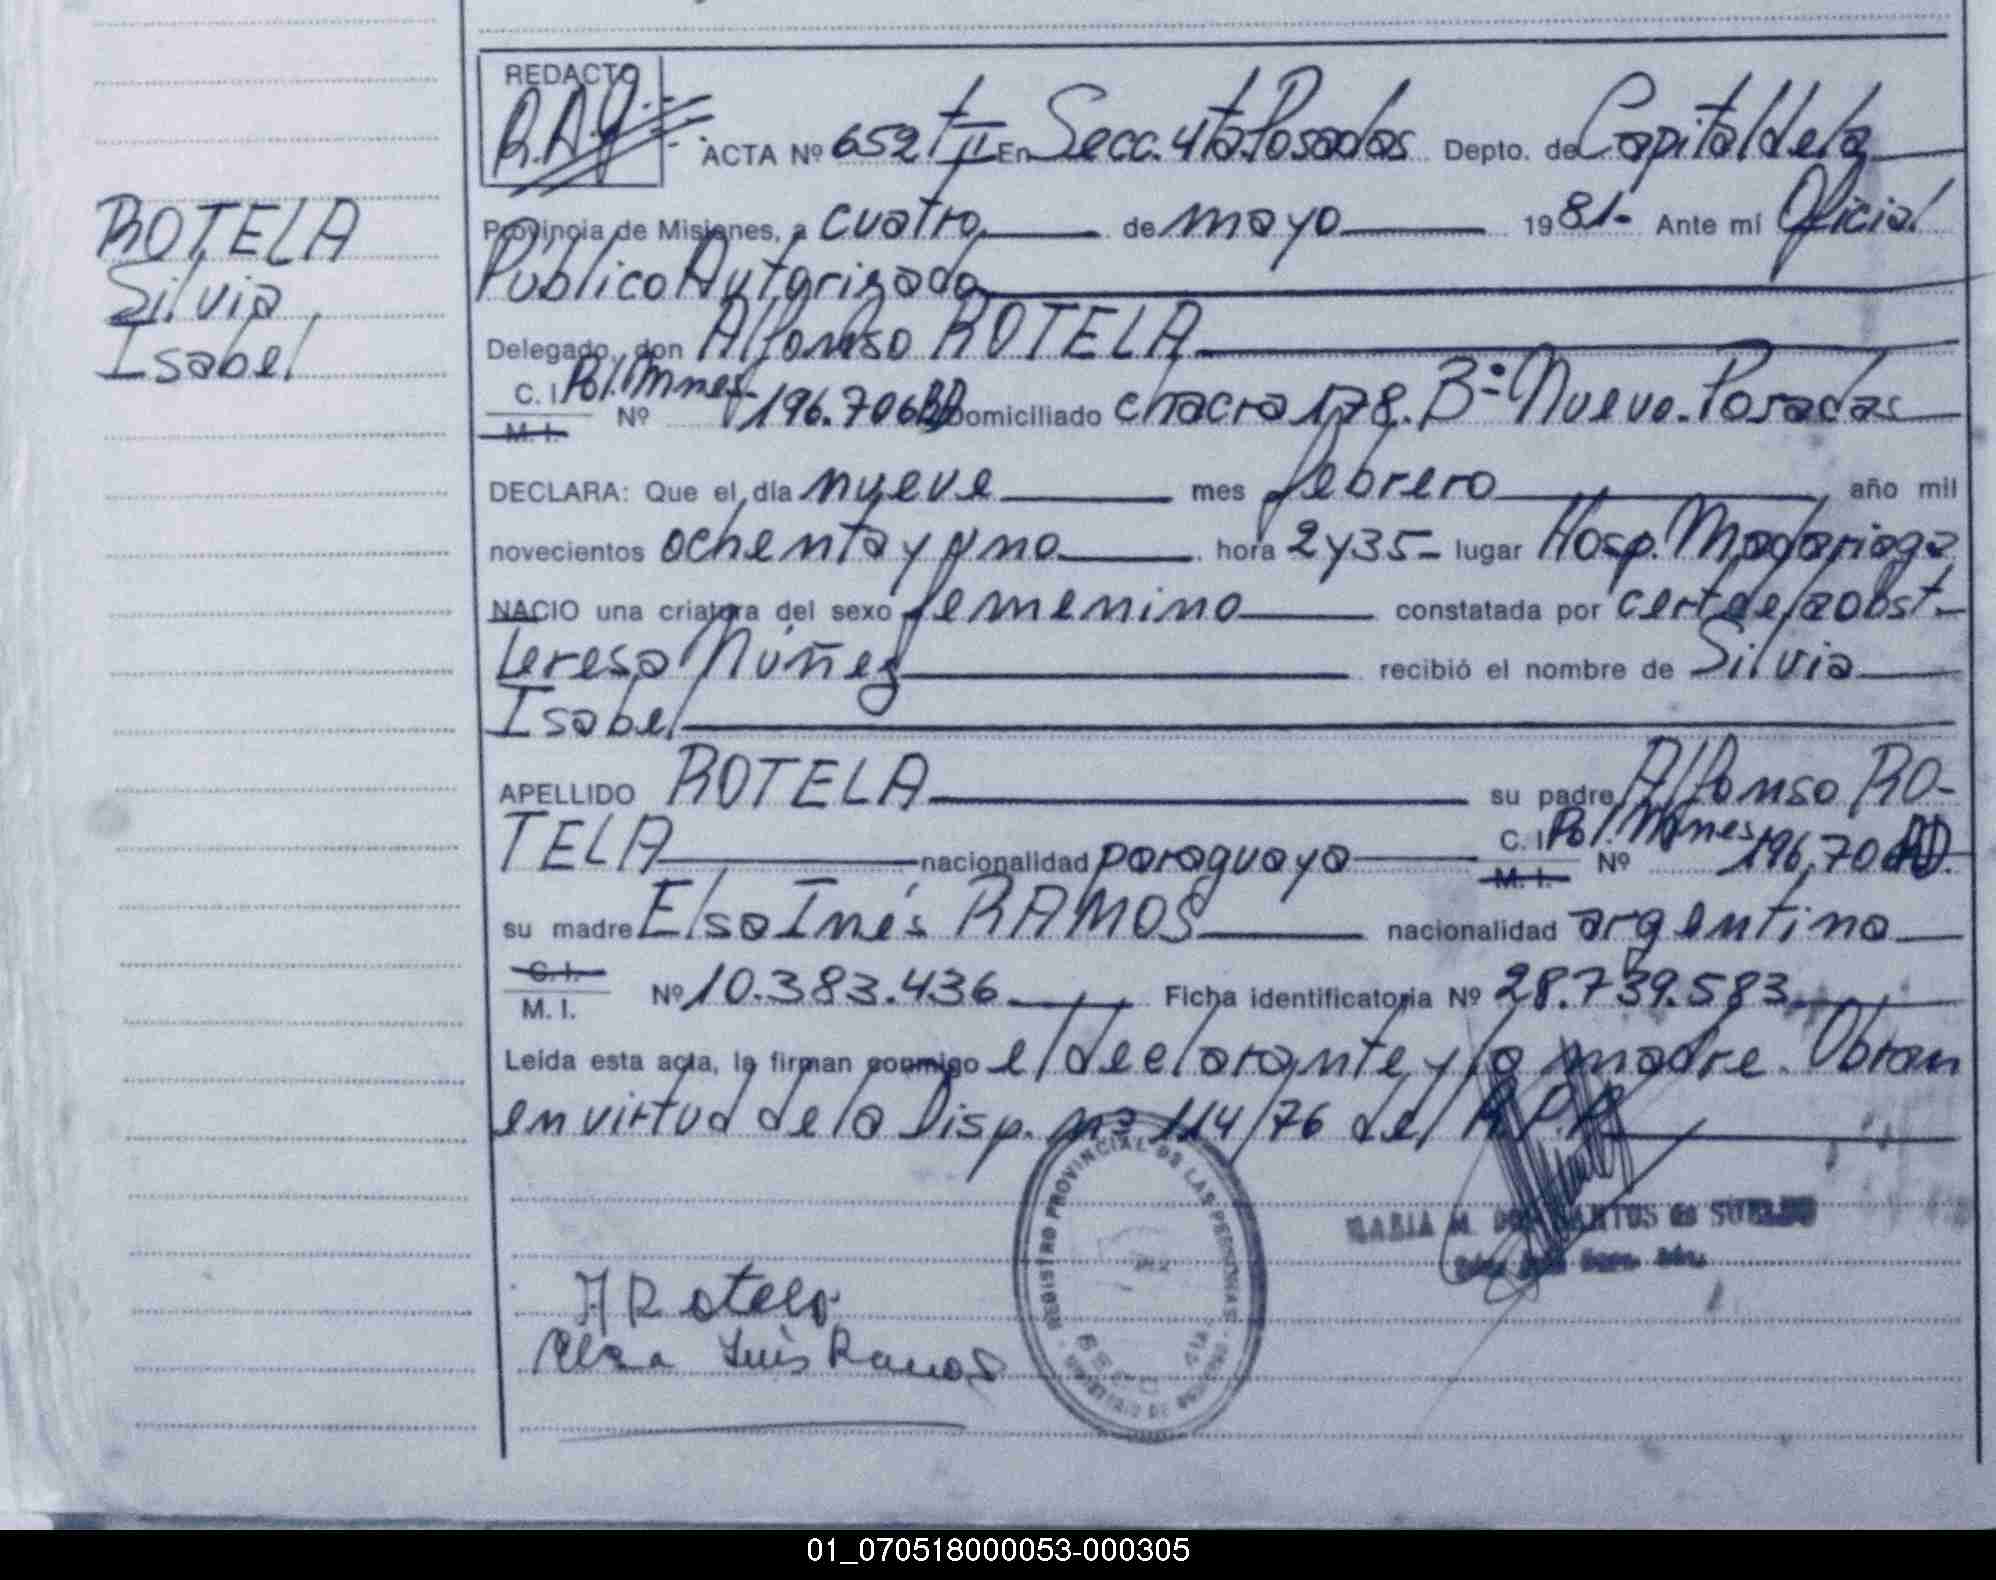 REDACTO
R.A.G.
ACTA Nº 652 t II En Secc. 4ta. Posadas Depto. de Capital de la
Provincia de Misiones, a cuatro de mayo 1981- Ante mí Oficial
Público Autorizado
Delegado, don Alfonso ROTELA
C. I. Pol. Mnes. Nº 196.706 Domiciliado chacra 178. Bº Nuevo. Posadas
M. I.
DECLARA: Que el día nueve mes febrero año mil
novecientos ochenta y uno hora 2 y 35- lugar Hosp. Madariaga
NACIO una criatura del sexo femenino constatada por cert de la obst.
Teresa Núñez recibió el nombre de Silvia
Isabel
APELLIDO ROTELA su padre Alfonso RO-
TELA nacionalidad paraguaya C. I. Pol. Mnes. Nº 196.706
M. I.
su madre Elsa Inés RAMOS nacionalidad argentina
C. I.
M. I. Nº 10.383.436 Ficha identificatoria Nº 28.739.583
Leída esta acta, la firman conmigo el declarante y la madre. Obran
en virtud de la Disp. nº 114/76 del R.P.P.
ROTELA
Silvia
Isabel
REGISTRO PROVINCIAL DE LAS PERSONAS
MINISTERIO DE GOBIERNO
MARIA M. DOS SANTOS de
A Rotela
Elsa Inés Ramos
01_070518000053-000305